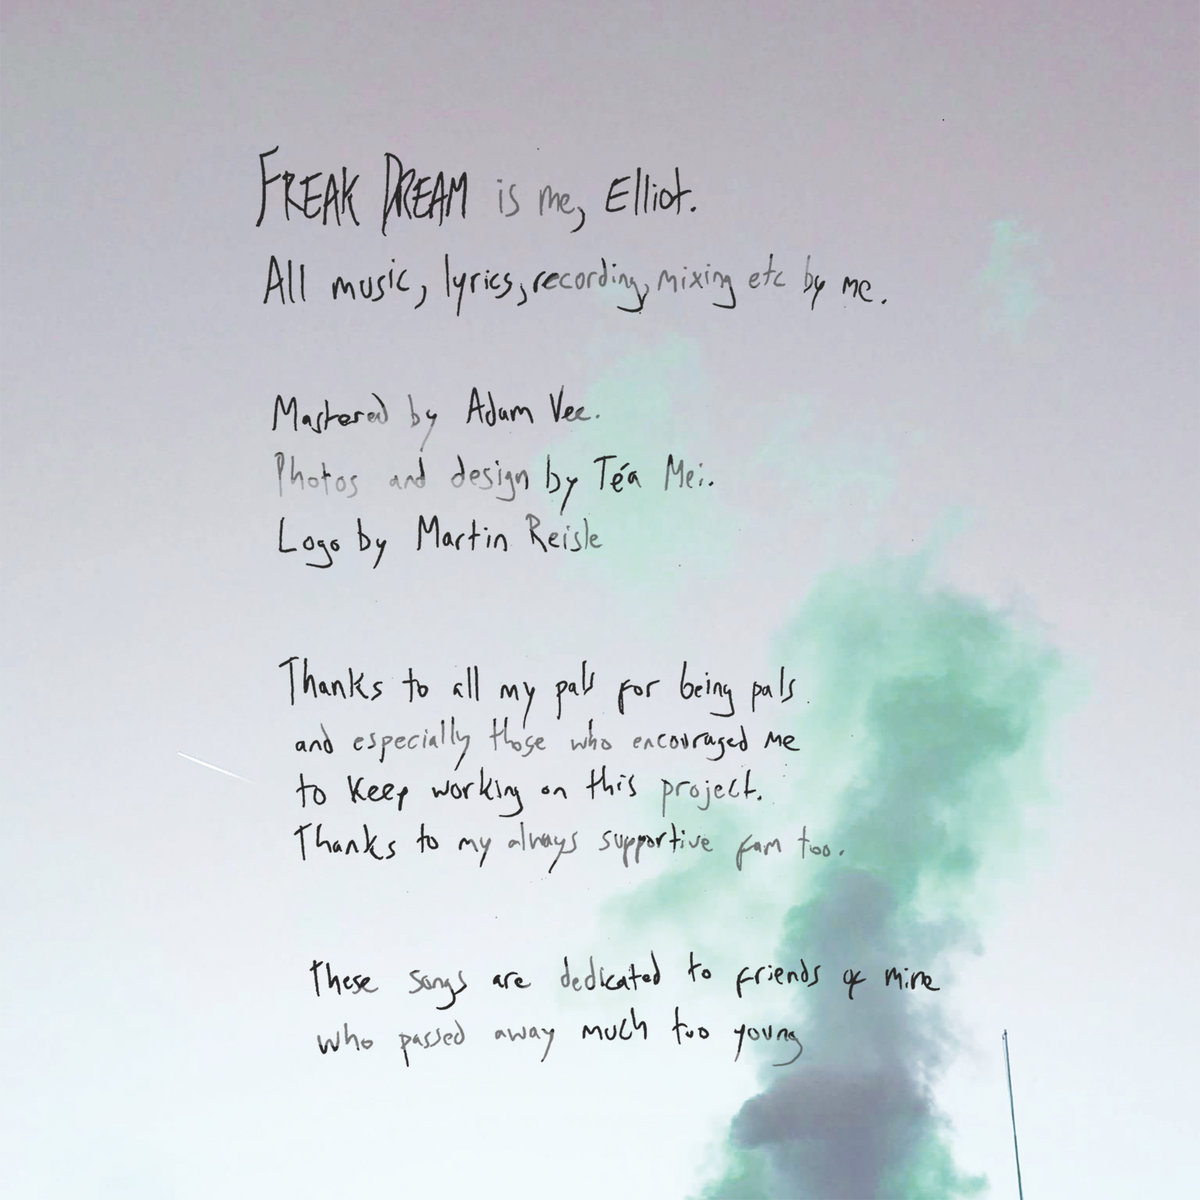 FREAK DREAM is me, Elliot.
All music, lyrics, recording, mixing etc by me.
Mastered by Adam Vee.
Photos and design by Téa Mei.
Logo by Martin Reisle
Thanks to all my pals for being pals.
and especially those who encouraged me
to keep working on this project.
Thanks to my always supportive fam too.
These songs are dedicated to friends of mine
who passed away much too young